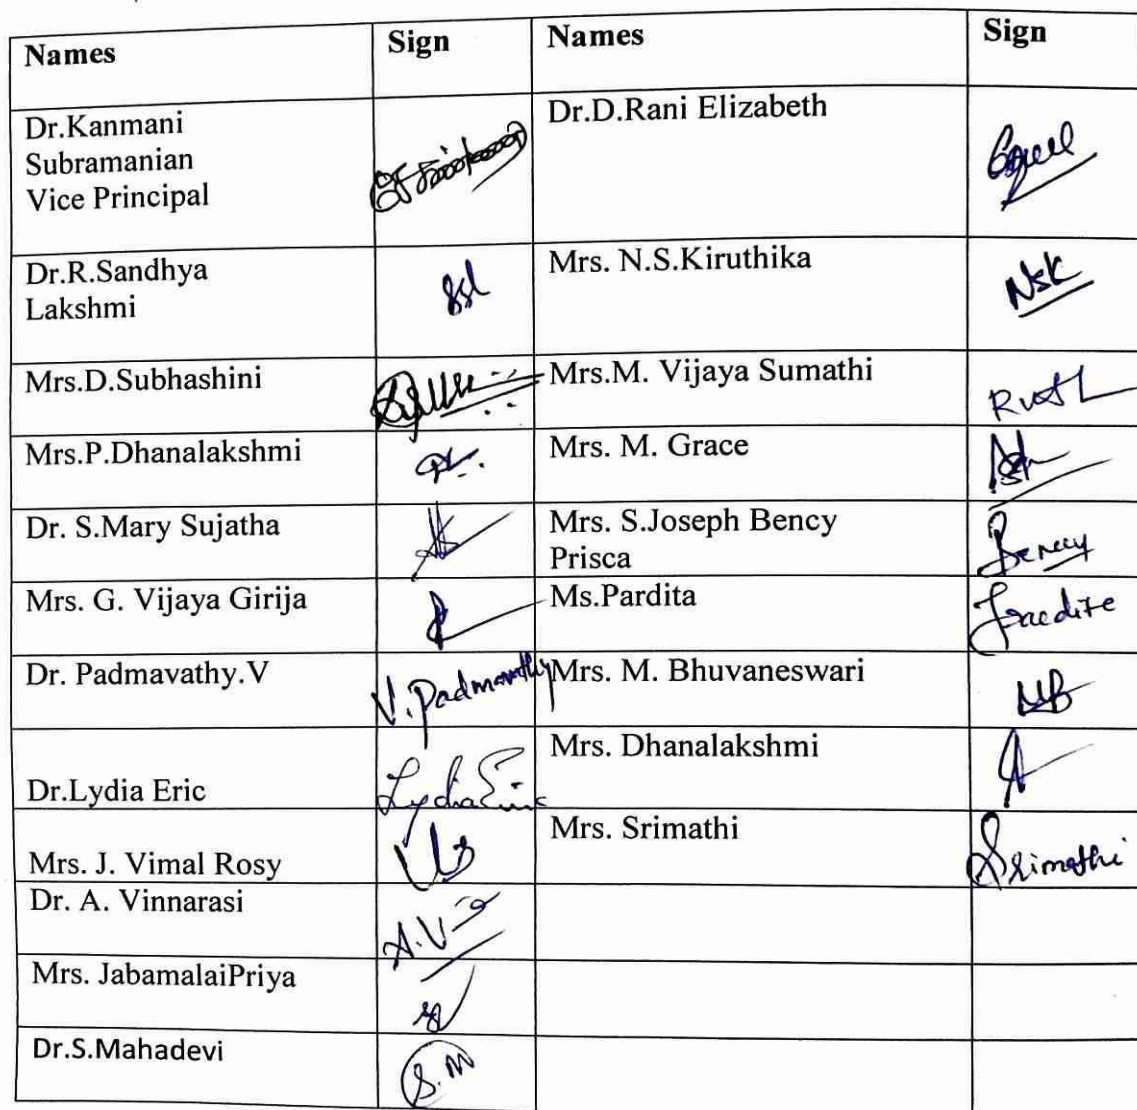 Names Sign Names Sign
Dr.Kanmani
Subramanian
Vice Principal
Dr.D.Rani Elizabeth
Dr.R.Sandhya
Lakshmi
Mrs. N.S.Kiruthika
NSK
Mrs.D.Subhashini
Mrs.M. Vijaya Sumathi
Mrs.P.Dhanalakshmi
Mrs. M. Grace
Dr. S.Mary Sujatha
Mrs. S.Joseph Bency
Prisca
Bency
Mrs. G. Vijaya Girija
Ms.Pardita
Dr. Padmavathy.V
V. Padmavathy
Mrs. M. Bhuvaneswari
MB
Dr.Lydia Eric
Lydia Eric
Mrs. Dhanalakshmi
Mrs. J. Vimal Rosy
Mrs. Srimathi
Srimathi
Dr. A. Vinnarasi
Mrs. JabamalaiPriya
Dr.S.Mahadevi
S.M